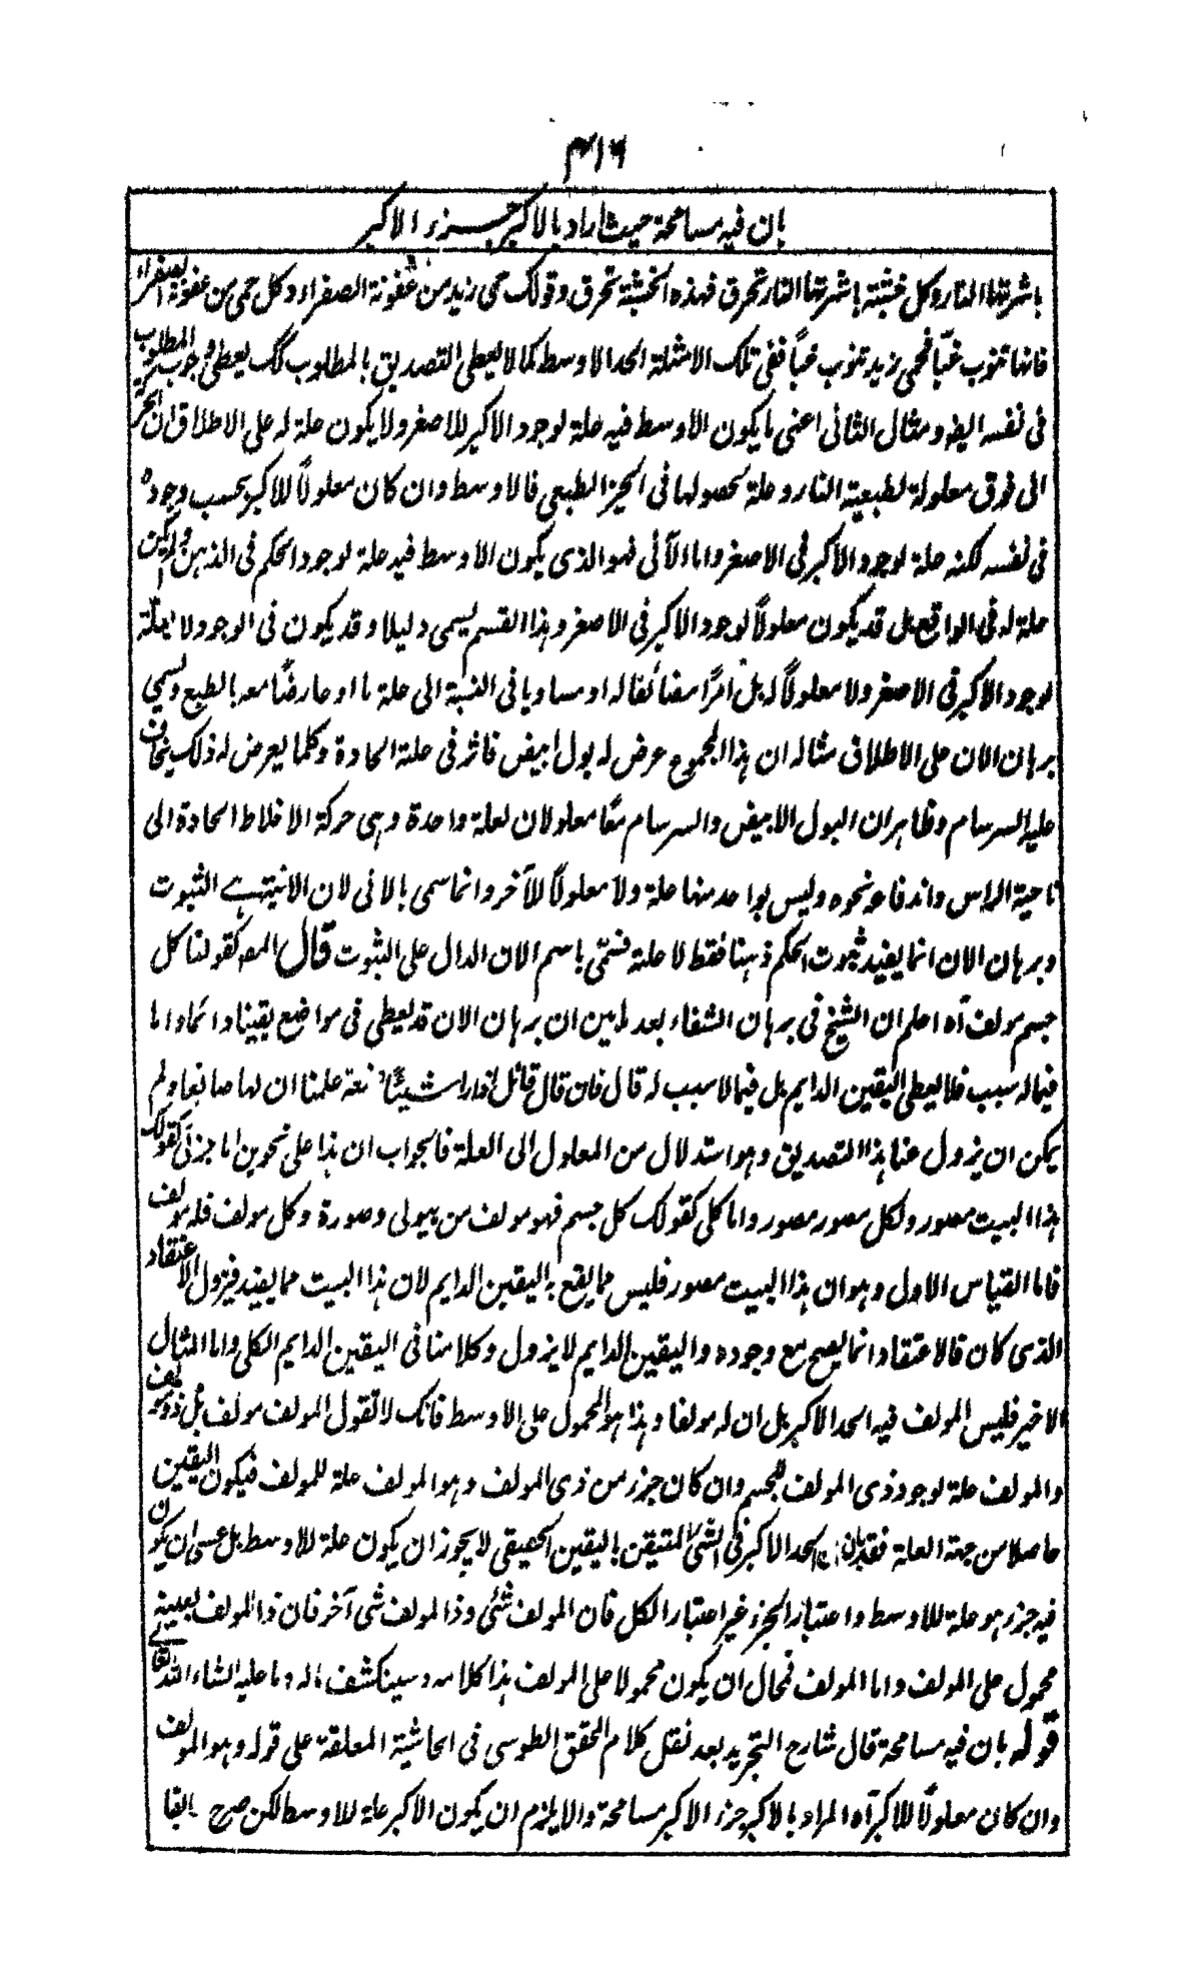 ٣١٦
بان فيه مسامحة حيث اراد بالاكبر جزء الاكبر
باشرتها النار وكل خشبة باشرتها النار تحرق فهذه الخشبة تحرق وقولك حمى زيد من عفونة الصفراء وكل حمى من عفونة الصفراء
فانها تنوب غبّا فحمى زيد تنوب غبّاً ففى تلك الامثلة الحد الاوسط كما لا يعطى التصديق بالمطلوب كك يعطى وجوب المطلوب
فى نفسه ايضه ومثال الثانى اعنى ما يكون الاوسط فيه علة لوجود الاكبر للاصغر ولا يكون علة له على الاطلاق ان
الى فوق معلولة لطبيعية النار وعلة لحصولها فى الحيز الطبعى فالاوسط وان كان معلولاً للاكبر بحسب وجوده
فى نفسه لكنه علة لوجود الاكبر فى الاصغر واما الآنى فهو الذى يكون الاوسط فيه علة لوجود الحكم فى الذهن ولم يكن
علة له فى الواقع بل قد يكون معلولاً لوجود الاكبر فى الاصغر وهذا القسم يسمى دليلا وقد يكون فى الوجود لا علّة
لوجود الاكبر فى الاصغر ولا معلولاً له بل امرًا مضائفا له او مساويا فى النسبة الى علة ما او عارضًا معه بالطبع ويسمي
برهان الان على الاطلاق مثاله ان هذا المحموم عرض له بول ابيض فاثر فى علته الحادة وكلما يعرض له ذلك يخاف
عليه السرسام وظاهر ان البول الابيض والسرسام معًا معلولان لعلة واحدة وهى حركة الاخلاط الحادة الى
ناحية الراس واندفاعه نحوه وليس بواحد منها علة ولا معلولاً للآخر وانما سمى بالانى لان الانية هے الثبوت
وبرهان الان انما يفيد ثبوت الحكم ذهنا فقط لا علته فسمّى باسم الان الدال على الثبوت قال المصـ كقولنا كل
جسم مولف آه اعلم ان الشيخ فى برهان الشفاء بعد ما بين ان برهان الان قد يعطى فى مواضع يقينا دائما واما
فيما له سبب فلا يعطى اليقين الدايم بل فيما لا سبب له قال فان قال قائل اذا راى شيئًا صنعة علمنا ان لها صانعا ولم
يمكن ان يزول عنا هذا التصديق وهو استدلال من المعلول الى العلة فالجواب ان هذا على نحوين اما جزئى كقولك
هذا البيت مصور ولكل مصور مصور واما كلى كقولك كل جسم فهو مولف من هيولى وصورة وكل مولف فله مولف
فاما القياس الاول وهو ان هذا البيت مصور فليس مما يقع به اليقين الدايم لان هذا البيت مما يفسد فيزول الاعتقاد
الذى كان فالاعتقاد انما يصح مع وجوده واليقين الدايم لا يزول وكلامنا فى اليقين الدايم الكلى واما المثال
الاخير فليس المولف فيه الحد الاكبر بل ان له مولفا وهذا هو المحمول على الاوسط فانك لا تقول المولف مولف بل ذو مولف
والمولف علة لوجود ذى المولف للجسم وان كان جزء من ذى المولف وهو المولف علة للمولف فيكون اليقين
حاصلا من جهة العلة فقد بان ان الحد الاكبر فى الشئ المتيقن باليقين الحقيقى لا يجوز ان يكون علة للاوسط بل عسى ان يكون
فيه جزء هو علة للاوسط واعتبار الجزء غير اعتبار الكل فان المولف شئى وذا المولف شى آخر فان ذا المولف بعينه
محمول على المولف واما المولف فمحال ان يكون محمولا على المولف هذا كلامه وسينكشف ماله وما عليه انشاء الله تعالے
قوله بان فيه مسامحة قال شارح التجريد بعد نقل كلام المحقق الطوسى فى الحاشية المعلقة على قوله وهو المولف
وان كان معلولاً للاكبر آه المراد بالاكبر جزء الاكبر مسامحة والا يلزم ان يكون الاكبر علة للاوسط لكن صرح سابقا